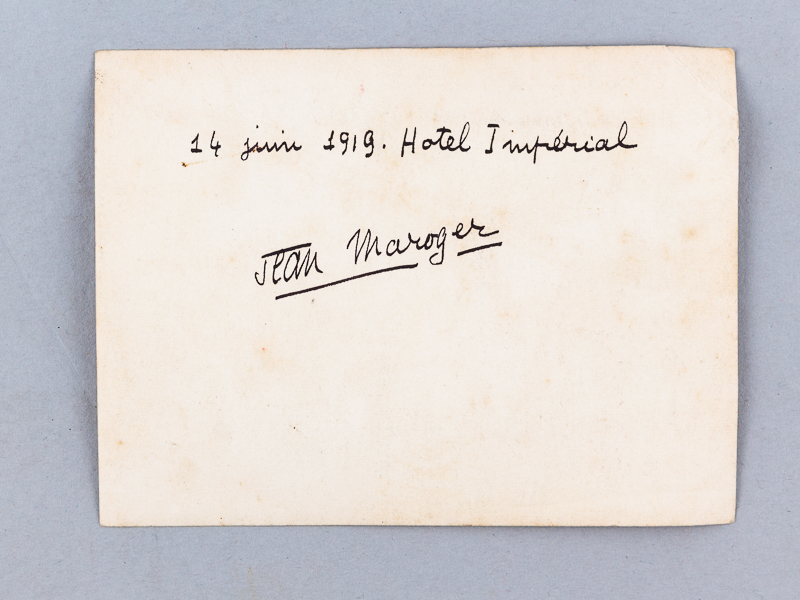 14 juin 1919. Hotel Impérial
Jean Maroger